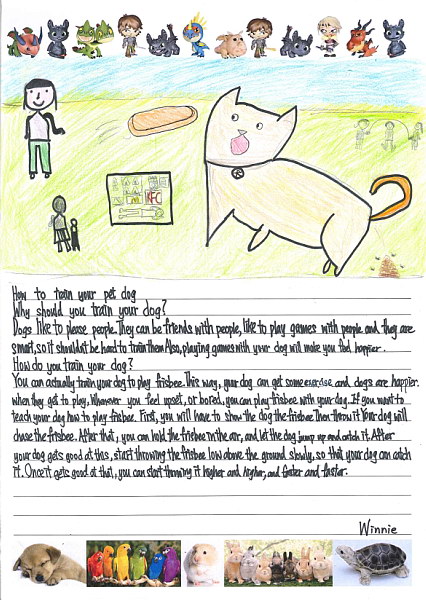 KFC
How to train your pet dog
Why should you train your dog?
Dogs like to please people. They can be friends with people, like to play games with people and they are
smart, so it shouldn't be hard to train them. Also, playing games with your dog will make you feel happier.
How do you train your dog?
You can actually train your dog to play frisbee. This way, your dog can get some exercise and dogs are happier
when they get to play. Whenever you feel upset, or bored, you can play frisbee with your dog. If you want to
teach your dog how to play frisbee. First, you will have to show the dog the frisbee. Then throw it. Your dog will
chase the frisbee. After that, you can hold the frisbee in the air, and let the dog jump up and catch it. After
your dog gets good at this, start throwing the frisbee low above the ground slowly, so that your dog can catch
it. Once it gets good at that, you can start throwing it higher and higher, and faster and faster.
Winnie